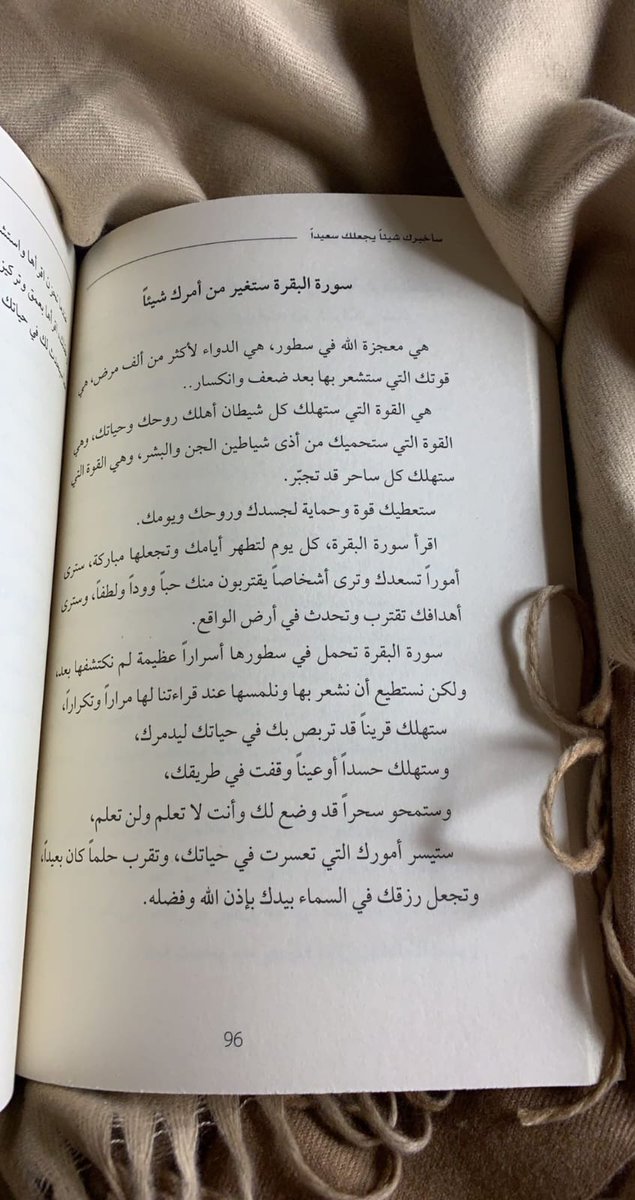 سأخبرك شيئاً يجعلك سعيداً
سورة البقرة ستغير من أمرك شيئاً
هي معجزة الله في سطور، هي الدواء لأكثر من ألف مرض، هي
قوتك التي ستشعر بها بعد ضعف وانكسار..
هي القوة التي ستهلك كل شيطان أهلك روحك وحياتك، وهي
القوة التي ستحميك من أذى شياطين الجن والبشر، وهي القوة التي
ستهلك كل ساحر قد تجبّر.
ستعطيك قوة وحماية لجسدك وروحك ويومك.
اقرأ سورة البقرة، كل يوم لتطهر أيامك وتجعلها مباركة، سترى
أموراً تسعدك وترى أشخاصاً يقتربون منك حباً ووداً ولطفاً، وسترى
أهدافك تقترب وتحدث في أرض الواقع.
سورة البقرة تحمل في سطورها أسراراً عظيمة لم نكتشفها بعد،
ولكن نستطيع أن نشعر بها ونلمسها عند قراءتنا لها مراراً وتكراراً،
ستهلك قريناً قد تربص بك في حياتك ليدمرك،
وستهلك حسداً أوعيناً وقفت في طريقك،
وستمحو سحراً قد وضع لك وأنت لا تعلم ولن تعلم،
ستيسر أمورك التي تعسرت في حياتك، وتقرب حلماً كان بعيداً،
وتجعل رزقك في السماء بيدك بإذن الله وفضله.
96